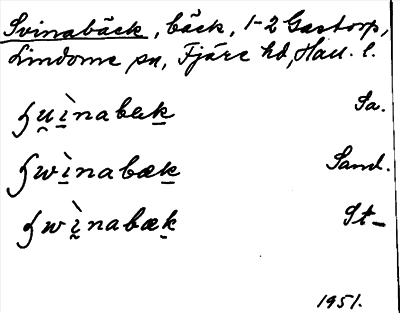 Svinabäck, bäck, 1-2 Gastorp,
Lindome sn, Fjäre hd, Hall. l.
ʃu̯ìnabæk Sa.
ʃwìnabæk Sand.
ʃwìnabæk St_
1951.